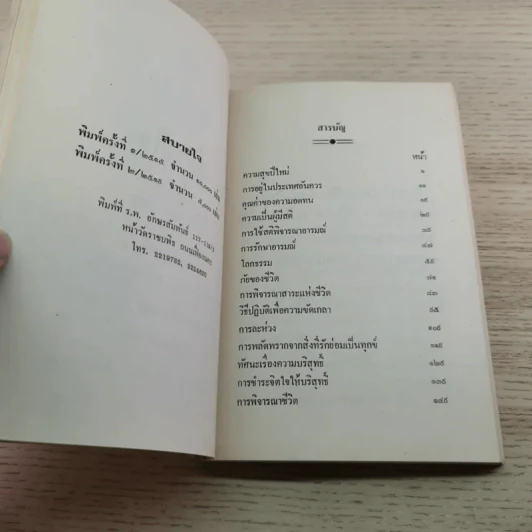 สบายใจ
พิมพ์ครั้งที่ ๑/๒๕๑๕ จำนวน ๑๐,๐๐๐ เล่ม
พิมพ์ครั้งที่ ๒/๒๕๑๕ จำนวน ๕,๐๐๐ เล่ม
พิมพ์ที่ ร.พ. อักษรสัมพันธ์
หน้าวัดราชบพิธ
โทร.
สารบัญ
หน้า
ความสุขปีใหม่ ๑
การอยู่ในประเทศอันควร ๑๑
คุณค่าของความอดทน
ความเป็นผู้มีสติ ๒๕
การใช้สติพิจารณาอารมณ์ ๓๕
การรักษาอารมณ์ ๔๗
โลกธรรม ๕๕
ภัยของชีวิต ๗๑
การพิจารณาสาระแห่งชีวิต ๘๓
วิธีปฏิบัติเพื่อความขัดเกลา ๙๕
การละห่วง ๑๐๕
การพลัดพรากจากสิ่งที่รักย่อมเป็นทุกข์ ๑๑๕
ทัศนะเรื่องความบริสุทธิ์ ๑๒๕
การชำระจิตใจให้บริสุทธิ์ ๑๓๕
การพิจารณาชีวิต ๑๔๕